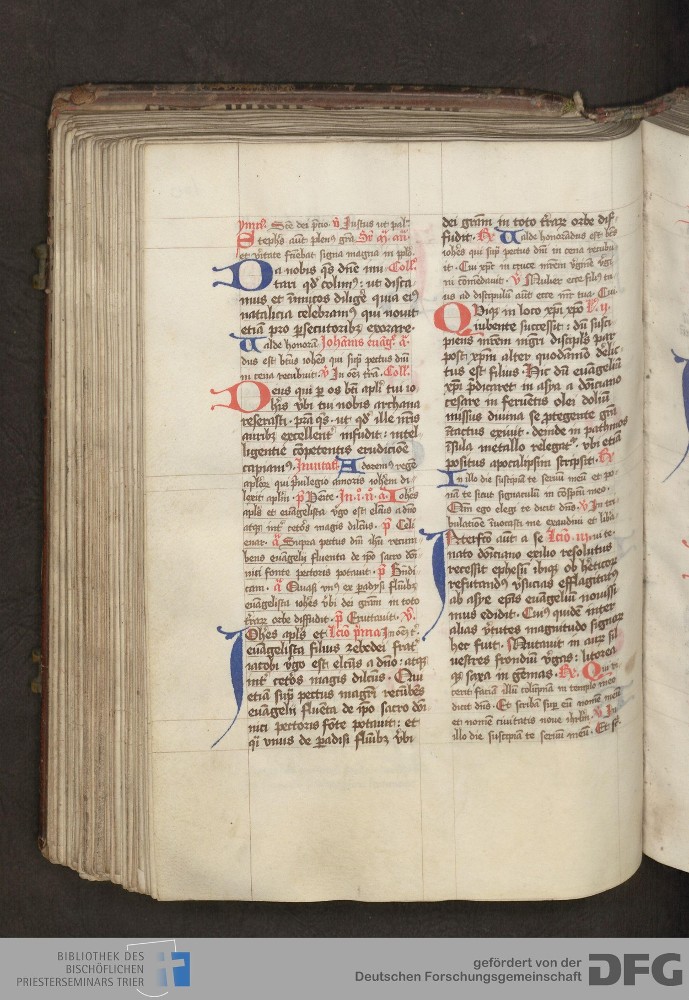 Sce dei p̄cio v̄ Justus ut pal
Stephs aūt plenus grā
et v̄tute faciebat signa magna in pplō
Da nobis qs dn̄e imi Collā
tari qd colimus: ut disca
mus et inimicos diligē quia eius
natalicia celebramus qui novit
etiā pro psecutoribz exorare
Valde honorā Johānis euāgē ā
dus est btūs iohēs qui sup pectus dn̄i
in cena recubuit. v̄ In oēm trā. Collā
Deus qui p os btī aplī tui io
hīs vbi tui nobis archana
reserasti. pra qs. ut qd ille nr̄is
auribz excellenter infudit: intel
ligentie cōpetentis erudicionē
capiamus. Invitat. Adoremus regē
aplor qui privilegio amoris iohēm di
lexit aplm̄. p̄ Venite. In. i. n̄. ā. Johēs
apls et euāgelista vgo est elcūs a dn̄o
atqz inter ceteros magis dilcūs. p̄ Celi
enar. ā Supra pectus dn̄i ihū recum
bens euāgelij fluenta de ipō sacro dn̄i
nici fonte pectoris potavit. p̄ Bndi
cam. ā Quasi vnus ex padysi flūibz
euāgelista iohēs vbi dei grām in toto
trar orbe diffudit. p̄ Eructavit. v̄.
Johēs apls et Lcio prima In oēm t.
euāgelista filius zebedei frat
iacobi vgo est elcūs a dn̄o: atqz
inter ceteros magis dilcūs. Qui
etiā sup pectus magrī recūbēs
euāgelij fluēta de ipō sacro dn̄i
nici pectoris fōte potavit: et
qi vnus de padisi flūibz vbi
dei grām in toto trar orbe dif
fudit. R Valde honoradus est btūs
iohēs qui sup pectus dn̄i in cena recubu
it. Cui xpc in cruce mrēm vginē vgi
ni comēdavit. v̄ Mulier ecce filius tu
us ad discipulū aūt ecce mr̄ tua. Cui
Ubiqz in loco xpi xpō L. ij.
iubente successit: dū susci
piens mrēm mgrī discipls par
post xpm alter quodāmō delic
tus est filius. Hic dū euāgeliū
xpi pdicaret in asya a domiciano
cesare in ferventis olei dolium
missus divina se ptegente grā
intactus exivit. deinde in pathmos
īsula metallo relegatus. vbi etiā
positus apocalipsim scripsit. R
In illo die suscipiā te servū meū et po
nā te sicut signaculū in cōspectu meo.
Qm̄ ego elegi te dicit dn̄s. v̄ In tri
bulatiōe īvocasti me exaudivi et libā
Interfcō aūt a se Lcio. iij. na te.
nato domiciano exilio resolutus
recessit ephesū ibiqz ob heticor
refutandas vsucias efflagitatus
ab asye epīs euāgeliū novissi
mus edidit. Cuius quidē inter
alias v̄tutes magnitudo signor
hec fuit. Mutavit in aurū sil
vestres frondiū vgas: litorea
qz saxa in gēmas. R. Qui vi
cerit faciā illū colūpnā in templo meo
dicit dn̄s. Et scribā sup eū nomē meū
et nomē civitatis nove ihrlm. v̄ In
illo die suscipiā te servū meū. Et st
BIBLIOTHEK DES
BISCHÖFLICHEN
PRIESTERSEMINARS TRIER
gefördert von der
Deutschen Forschungsgemeinschaft
DFG